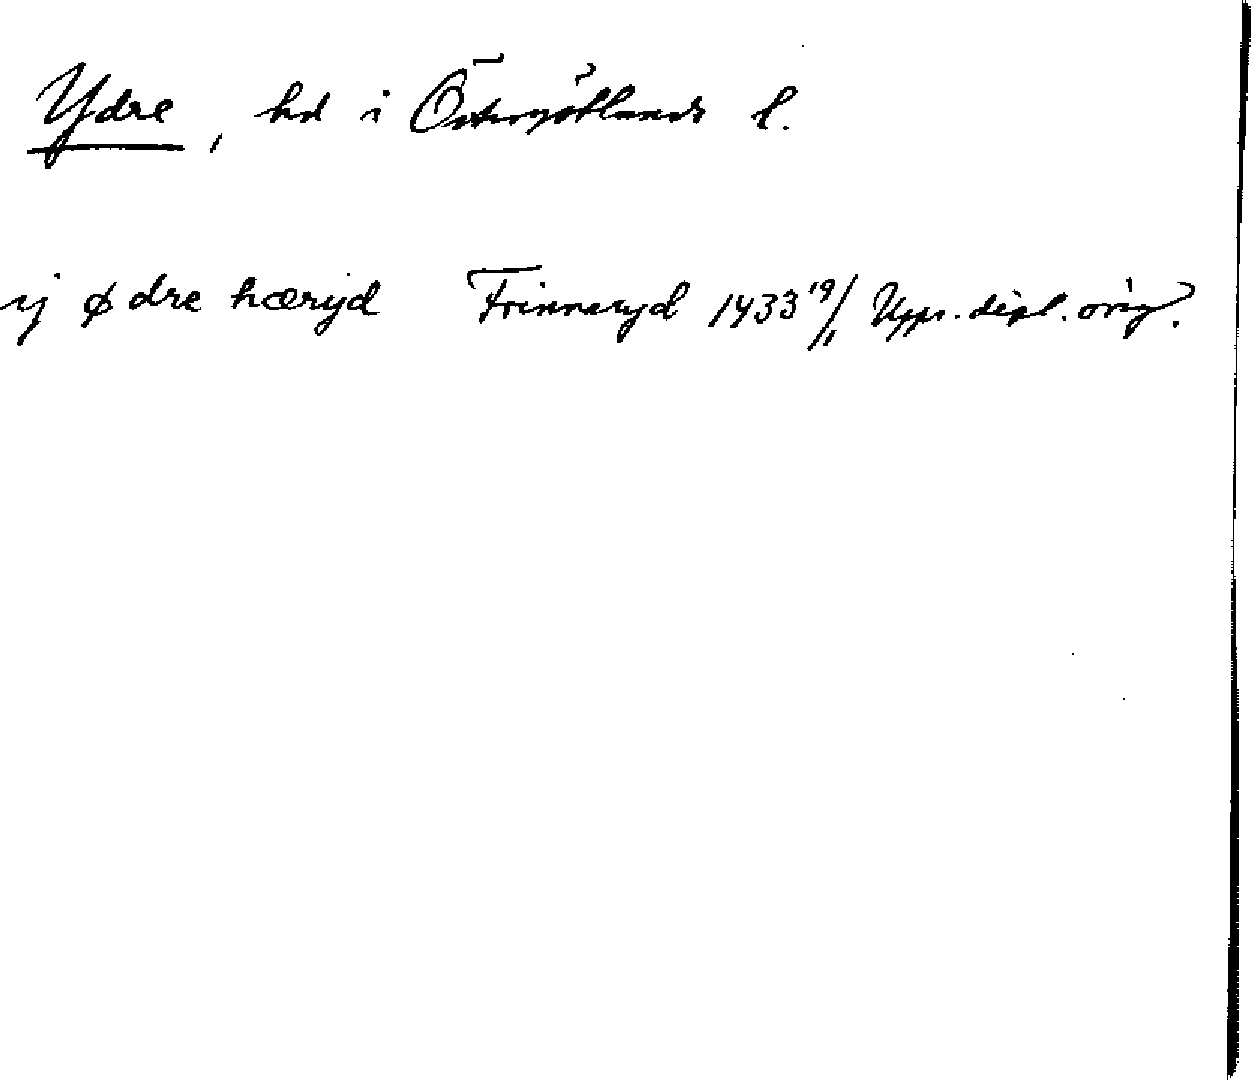 Ydre, hd i Östergötlands l.
ij ødre hæryd Frinnaryd 1433 19/1 Upps. dipl. orig.